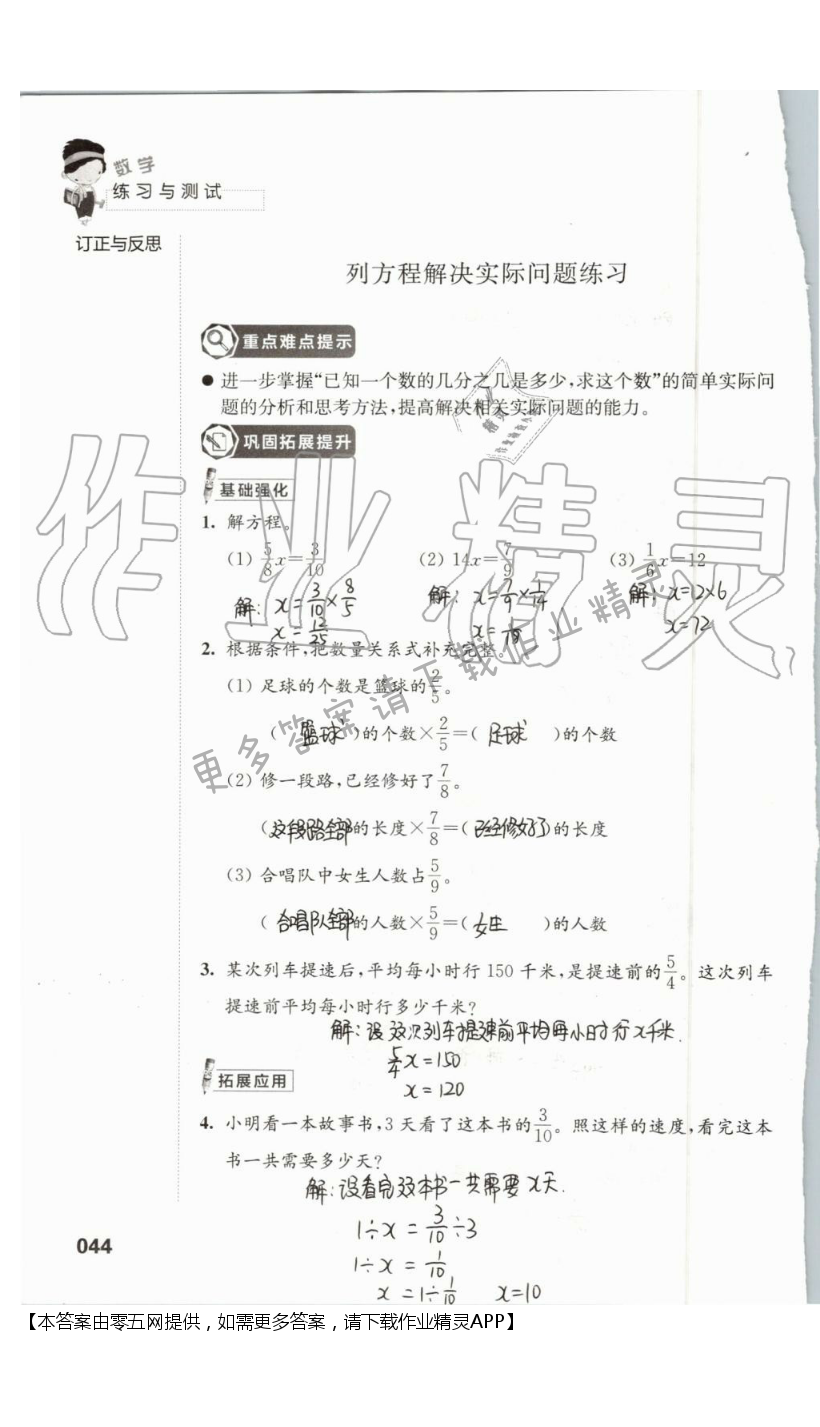 数学
练习与测试
订正与反思
列方程解决实际问题练习
重点难点提示
● 进一步掌握“已知一个数的几分之几是多少,求这个数”的简单实际问
题的分析和思考方法,提高解决相关实际问题的能力。
巩固拓展提升
基础强化
1. 解方程。
(1) 5/8 x=3/10 (2) 14x=7/9 (3) 1/6 x=12
解: x=3/10×8/5 解: x=7/9×1/14 解: x=12×6
x=12/25 x=1/18 x=72
2. 根据条件,把数量关系式补充完整。
(1) 足球的个数是篮球的2/5。
(篮球)的个数×2/5=(足球)的个数
(2) 修一段路,已经修好了7/8。
(这段路全部的长度×7/8=(已经修好了)的长度
(3) 合唱队中女生人数占5/9。
(合唱队全部的人数×5/9=(女生)的人数
3. 某次列车提速后,平均每小时行 150 千米,是提速前的5/4。这次列车
提速前平均每小时行多少千米?
解:设这次列车提速前平均每小时行x千米.
5/4 x=150
x=120
拓展应用
4. 小明看一本故事书,3 天看了这本书的3/10。照这样的速度,看完这本
书一共需要多少天?
解:设看完这本书一共需要x天.
1÷x=3/10÷3
1÷x=1/10
x=1÷1/10 x=10
044
作业精灵
更多答案请下载作业精灵
【本答案由零五网提供，如需更多答案，请下载作业精灵APP】